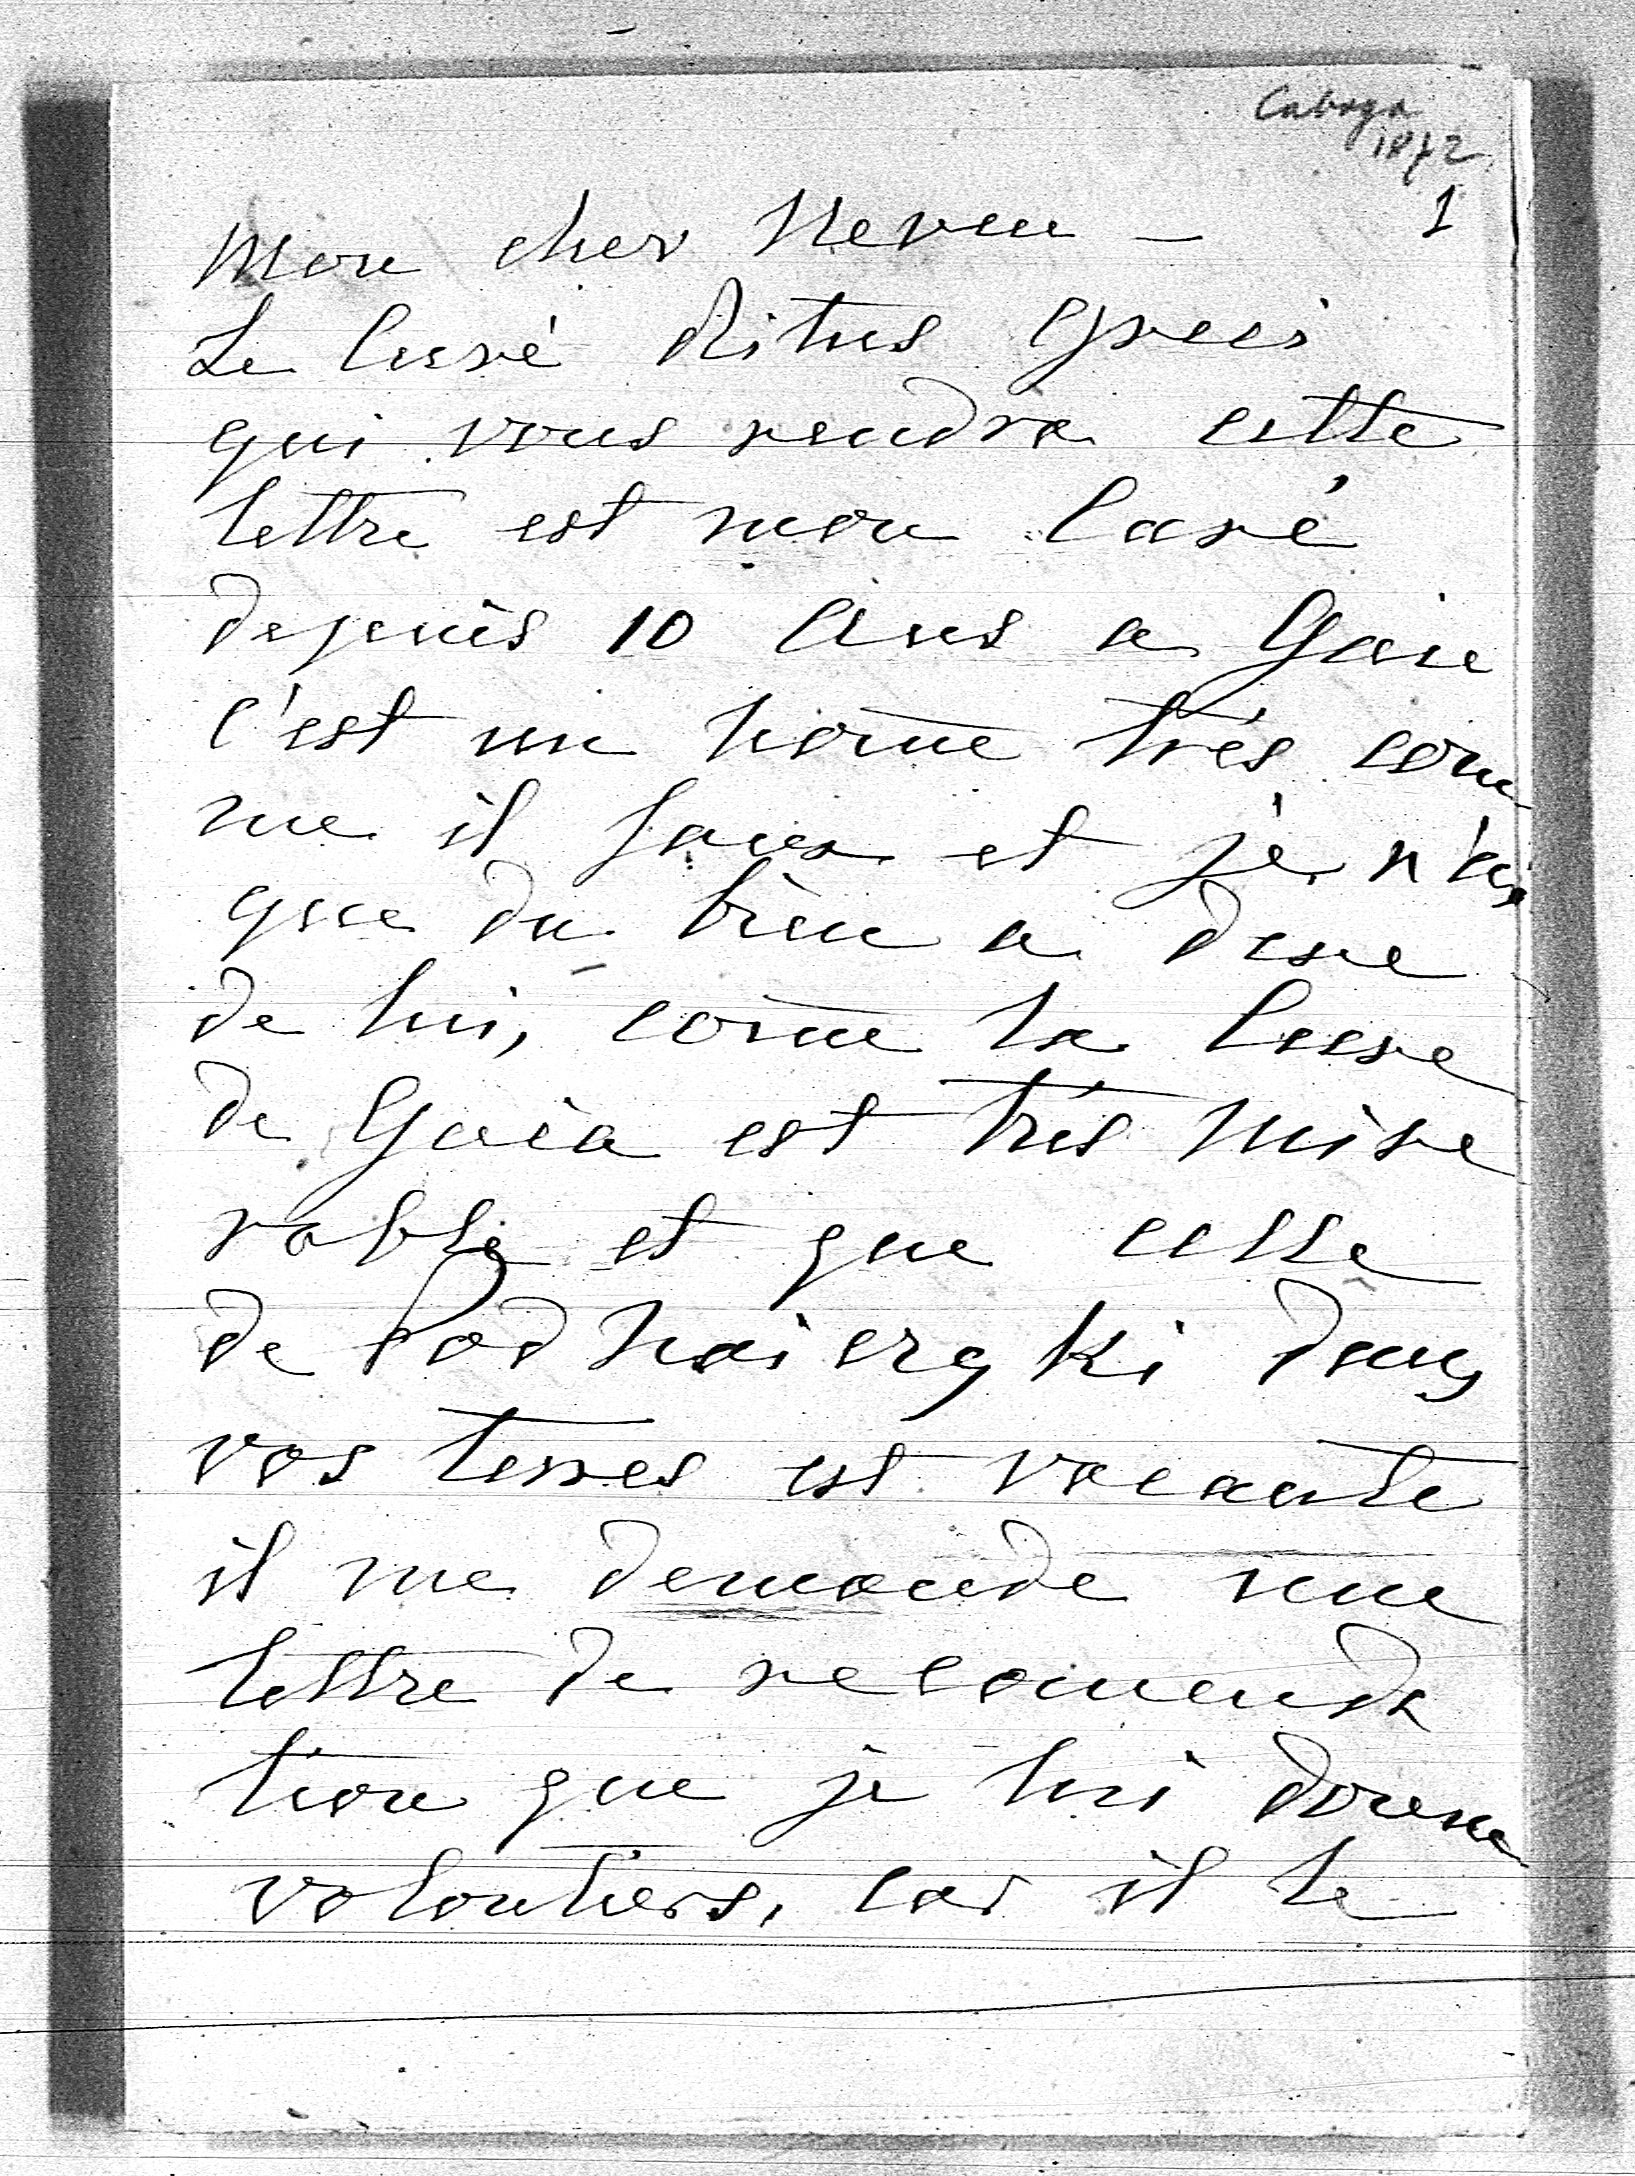 Caboga
1872
1
Mon cher Neveu —
Le Curé Ritus Greci
qui vous rendra cette
lettre est mon Curé
depuis 10 Ans a Gaia
c'est un hom̅e trés com
me il faux et je n'ai
que du bien a dire
de lui, com̅e la Cure
de Gaia est trés mise
rable et que celle
de Podhaiczyki dans
vos terres est vacante
il me demande une
lettre de recomenda
tion que je lui donne
volontiers, car il le